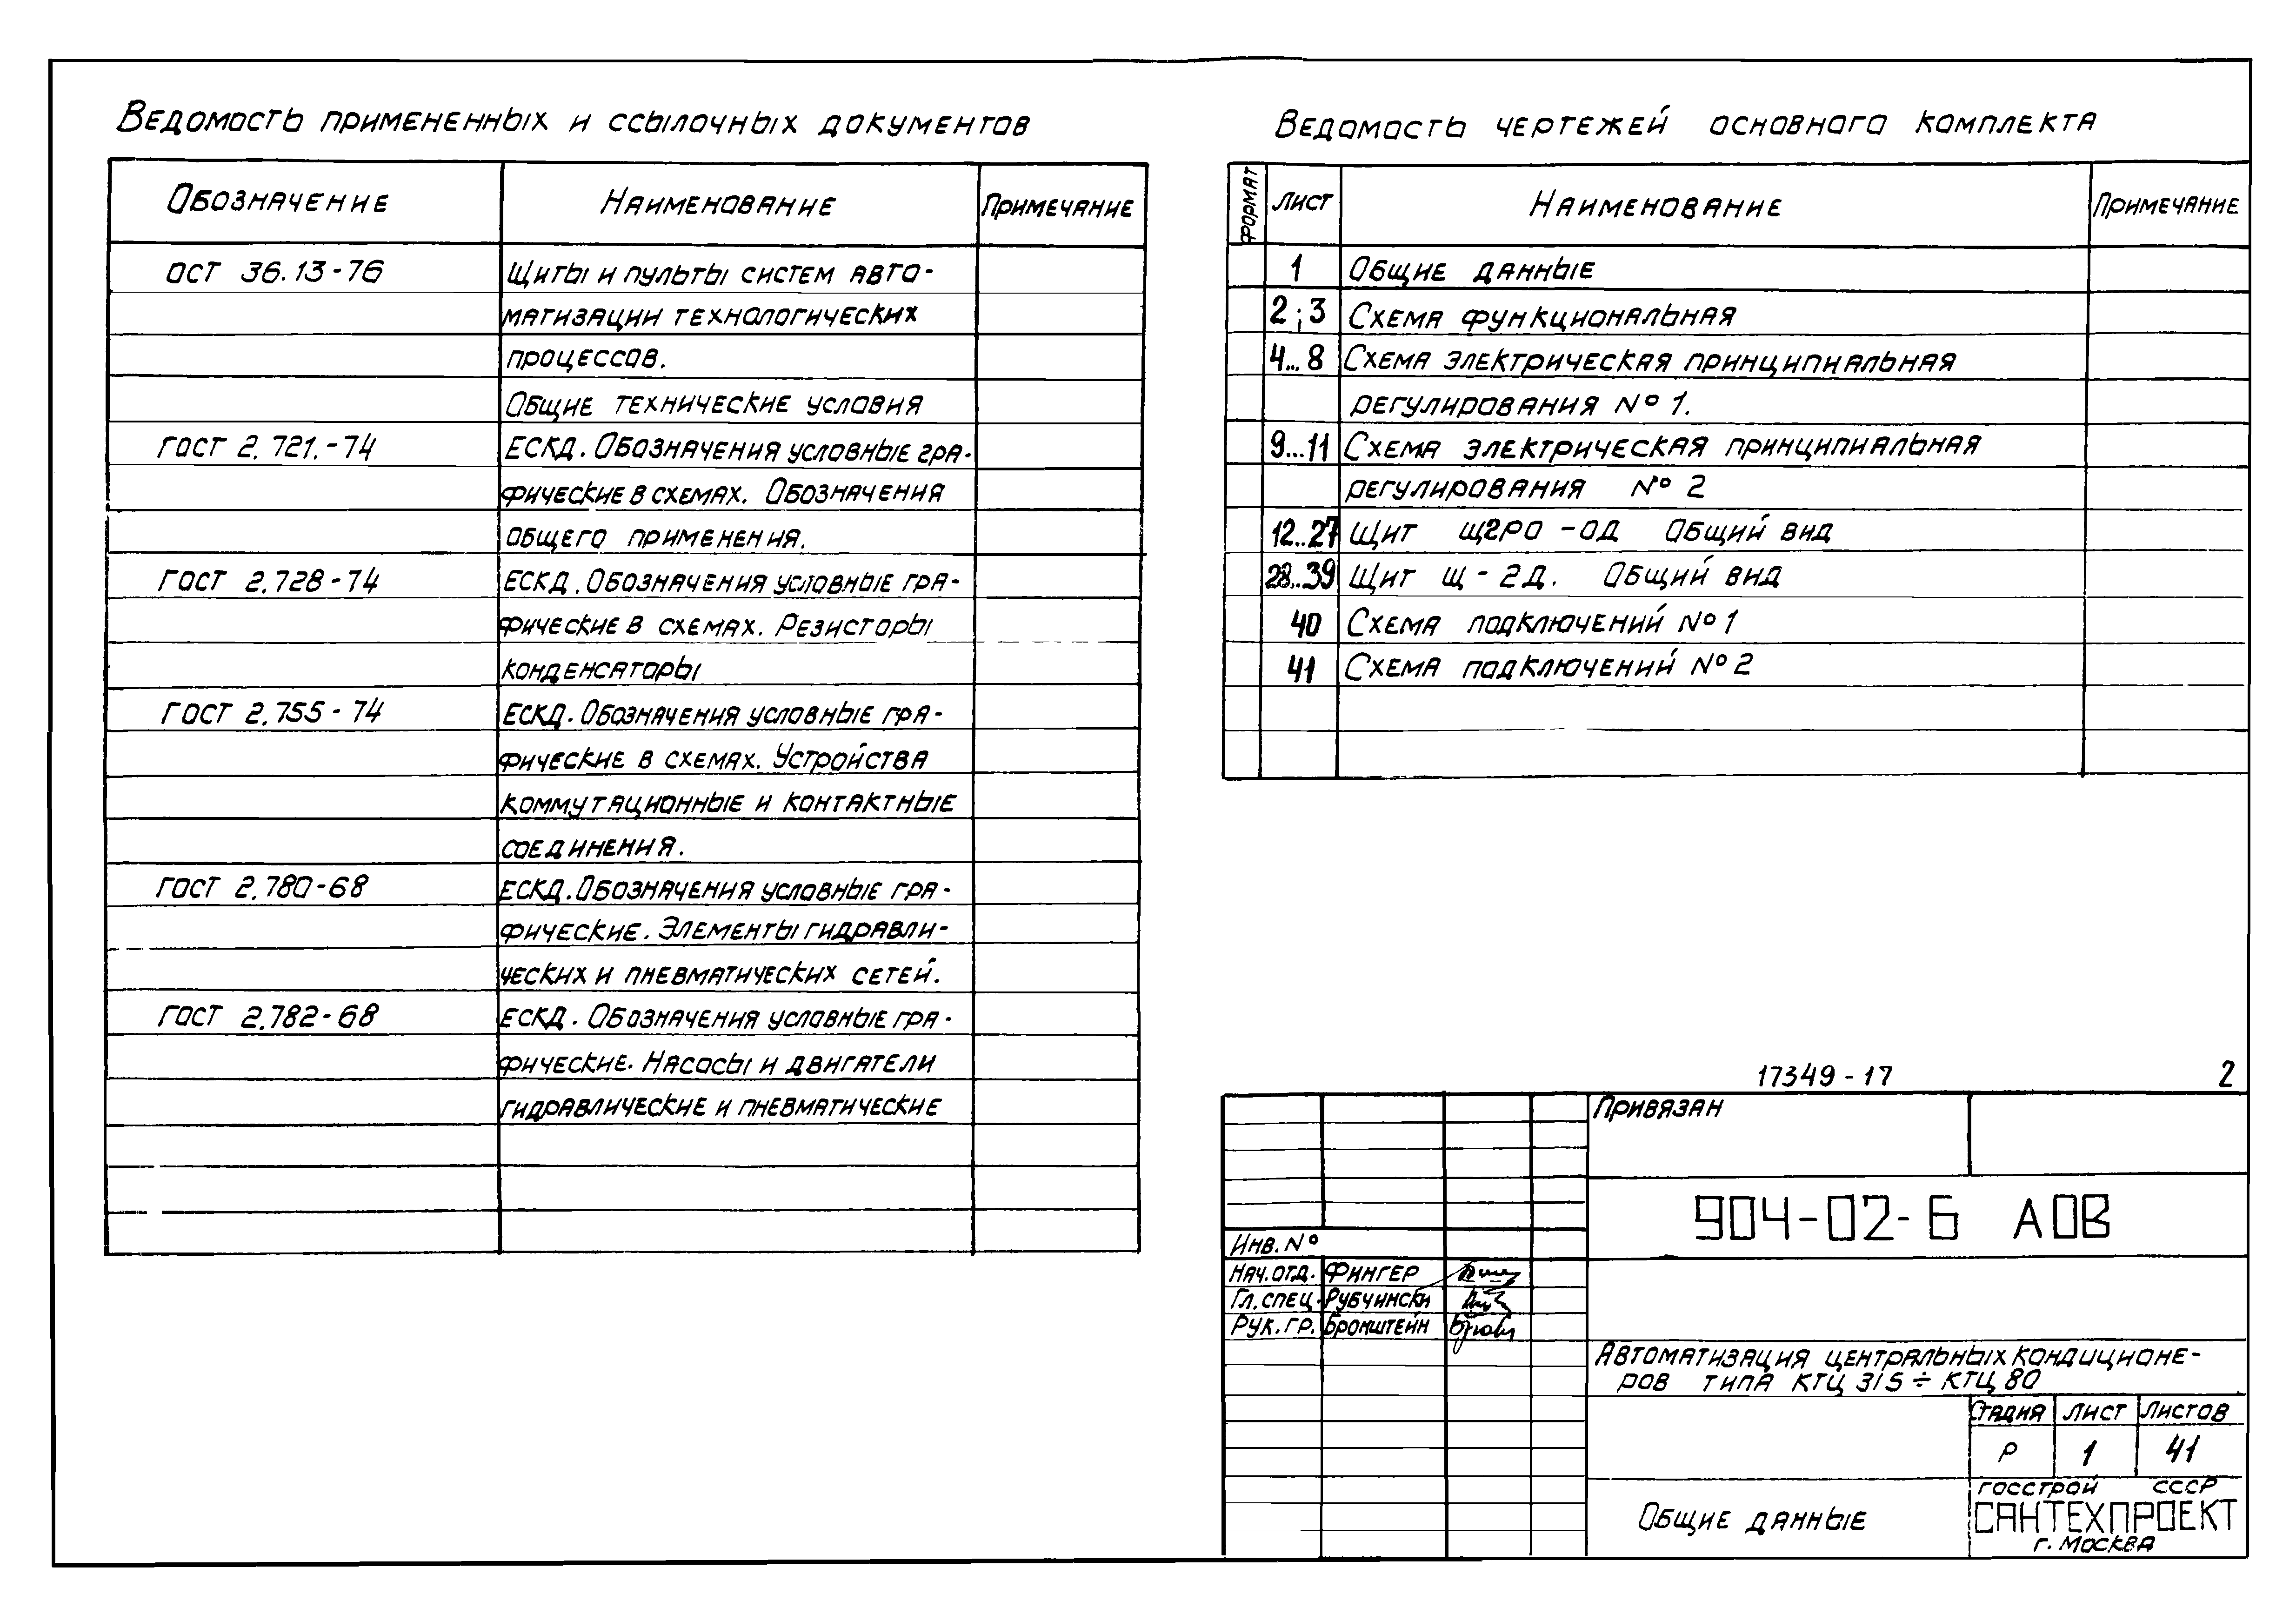 Ведомость примененных и ссылочных документов
Обозначение Наименование Примечание
ОСТ 36.13-76 Щиты и пульты систем авто-
матизации технологических
процессов.
Общие технические условия
ГОСТ 2.721.-74 ЕСКД. Обозначения условные гра-
фические в схемах. Обозначения
общего применения.
ГОСТ 2.728-74 ЕСКД. Обозначения условные гра-
фические в схемах. Резисторы
конденсаторы
ГОСТ 2.755-74 ЕСКД. Обозначения условные гра-
фические в схемах. Устройства
коммутационные и контактные
соединения.
ГОСТ 2.780-68 ЕСКД. Обозначения условные гра-
фические. Элементы гидравли-
ческих и пневматических сетей.
ГОСТ 2.782-68 ЕСКД. Обозначения условные гра-
фические. Насосы и двигатели
гидравлические и пневматические
Ведомость чертежей основного комплекта
Формат Лист Наименование Примечание
1 Общие данные
2; 3 Схема функциональная
4...8 Схема электрическая принципиальная
регулирования №1.
9...11 Схема электрическая принципиальная
регулирования № 2
12..27 Щит щгро-од Общий вид
28..39 Щит щ-2д. Общий вид
40 Схема подключений №1
41 Схема подключений №2
17349-17 2
Привязан
904-02-6 АОВ
Инв. №
Нач. отд. Фингер
Гл. спец. Рубчински
Рук. гр. Бронштейн
Автоматизация центральных кондиционе-
ров типа КТЦ 31,5 ÷ КТЦ 80
Стадия Лист Листов
Р 1 41
Общие данные
Госстрой СССР
САНТЕХПРОЕКТ
г. Москва